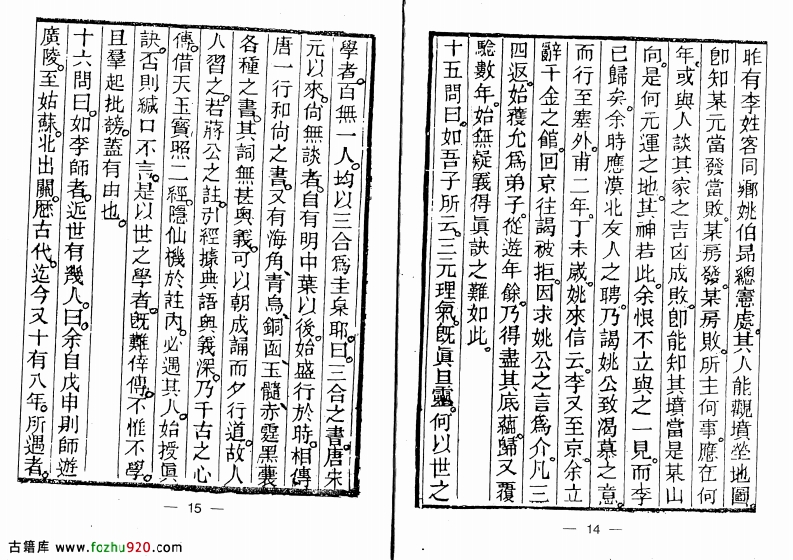 昨有李姓客同鄉姚伯昂總憲處。其人能觀墳塋地圖。
卽知某元當發當敗。某房發。某房敗。所主何事。應在何
年。或與人談其家之吉凶成敗。卽能知其墳當是某山
向。是何元運之地。其神若此。余恨不立與之一見。而李
已歸矣。余時應漠北友人之聘。乃謁姚公致渴慕之意。
而行至塞外。甫二年。丁未歲。姚來信云。李又至京。余立
辭千金之館。回京往謁被拒。因求姚公之言爲介。凡三
四返。始獲允爲弟子。從遊年餘。乃得盡其底蘊。歸又覆
騐數年。始無疑義。得眞訣之難如此。
十五問曰。如吾子所云。三元理氣。旣眞且靈。何以世之
— 14 —
學者。百無一人。均以三合爲圭臬耶。曰。三合之書。唐宋
元以來。尙無談者。自有明中葉以後。始盛行於時。相傳
唐一行和尙之書。又有海角、靑烏、銅函、玉髓、赤霆、黑囊
各種之書。其詞無甚奧義。可以朝成誦而夕行道。故人
人習之。若蔣公之註。引經據典。語奧義深。乃千古之心
傳。借天玉寶照二經。隱仙機於註內。必遇其人。始授眞
訣。否則緘口不言。是以世之學者。旣難倖傳。不惟不學。
且羣起批謗。蓋有由也。
十六問曰。如李師者。近世有幾人。曰。余自戊申則師遊
廣陵。至姑蘇。北出關。歷古代。迄今又十有八年。所遇者。
— 15 —
古籍库 www.fozhu920.com